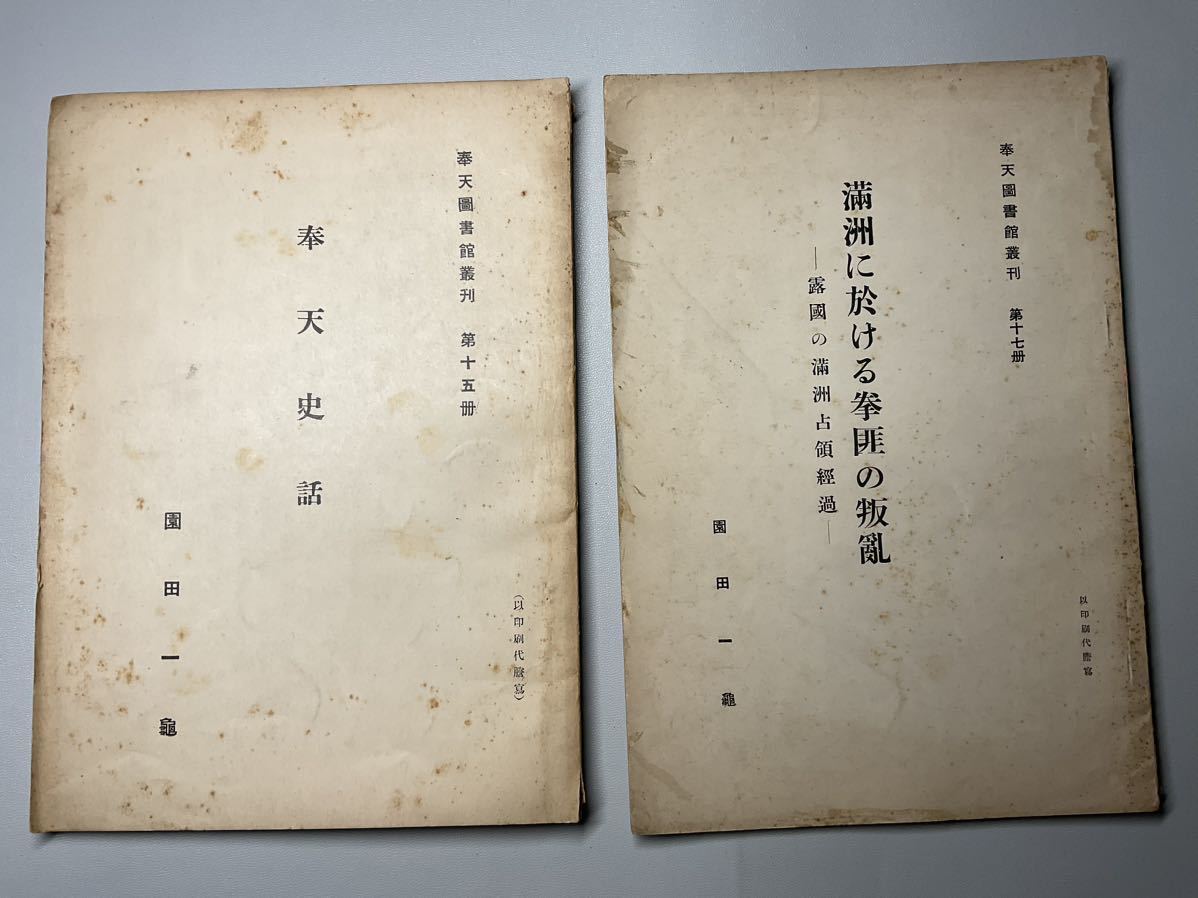 奉天圖書館叢刊 第十五册
奉天史話
園田一龜
(以印刷代謄寫)
奉天圖書館叢刊 第十七册
滿洲に於ける拳匪の叛亂
―露國の滿洲占領經過―
園田一龜
以印刷代謄寫